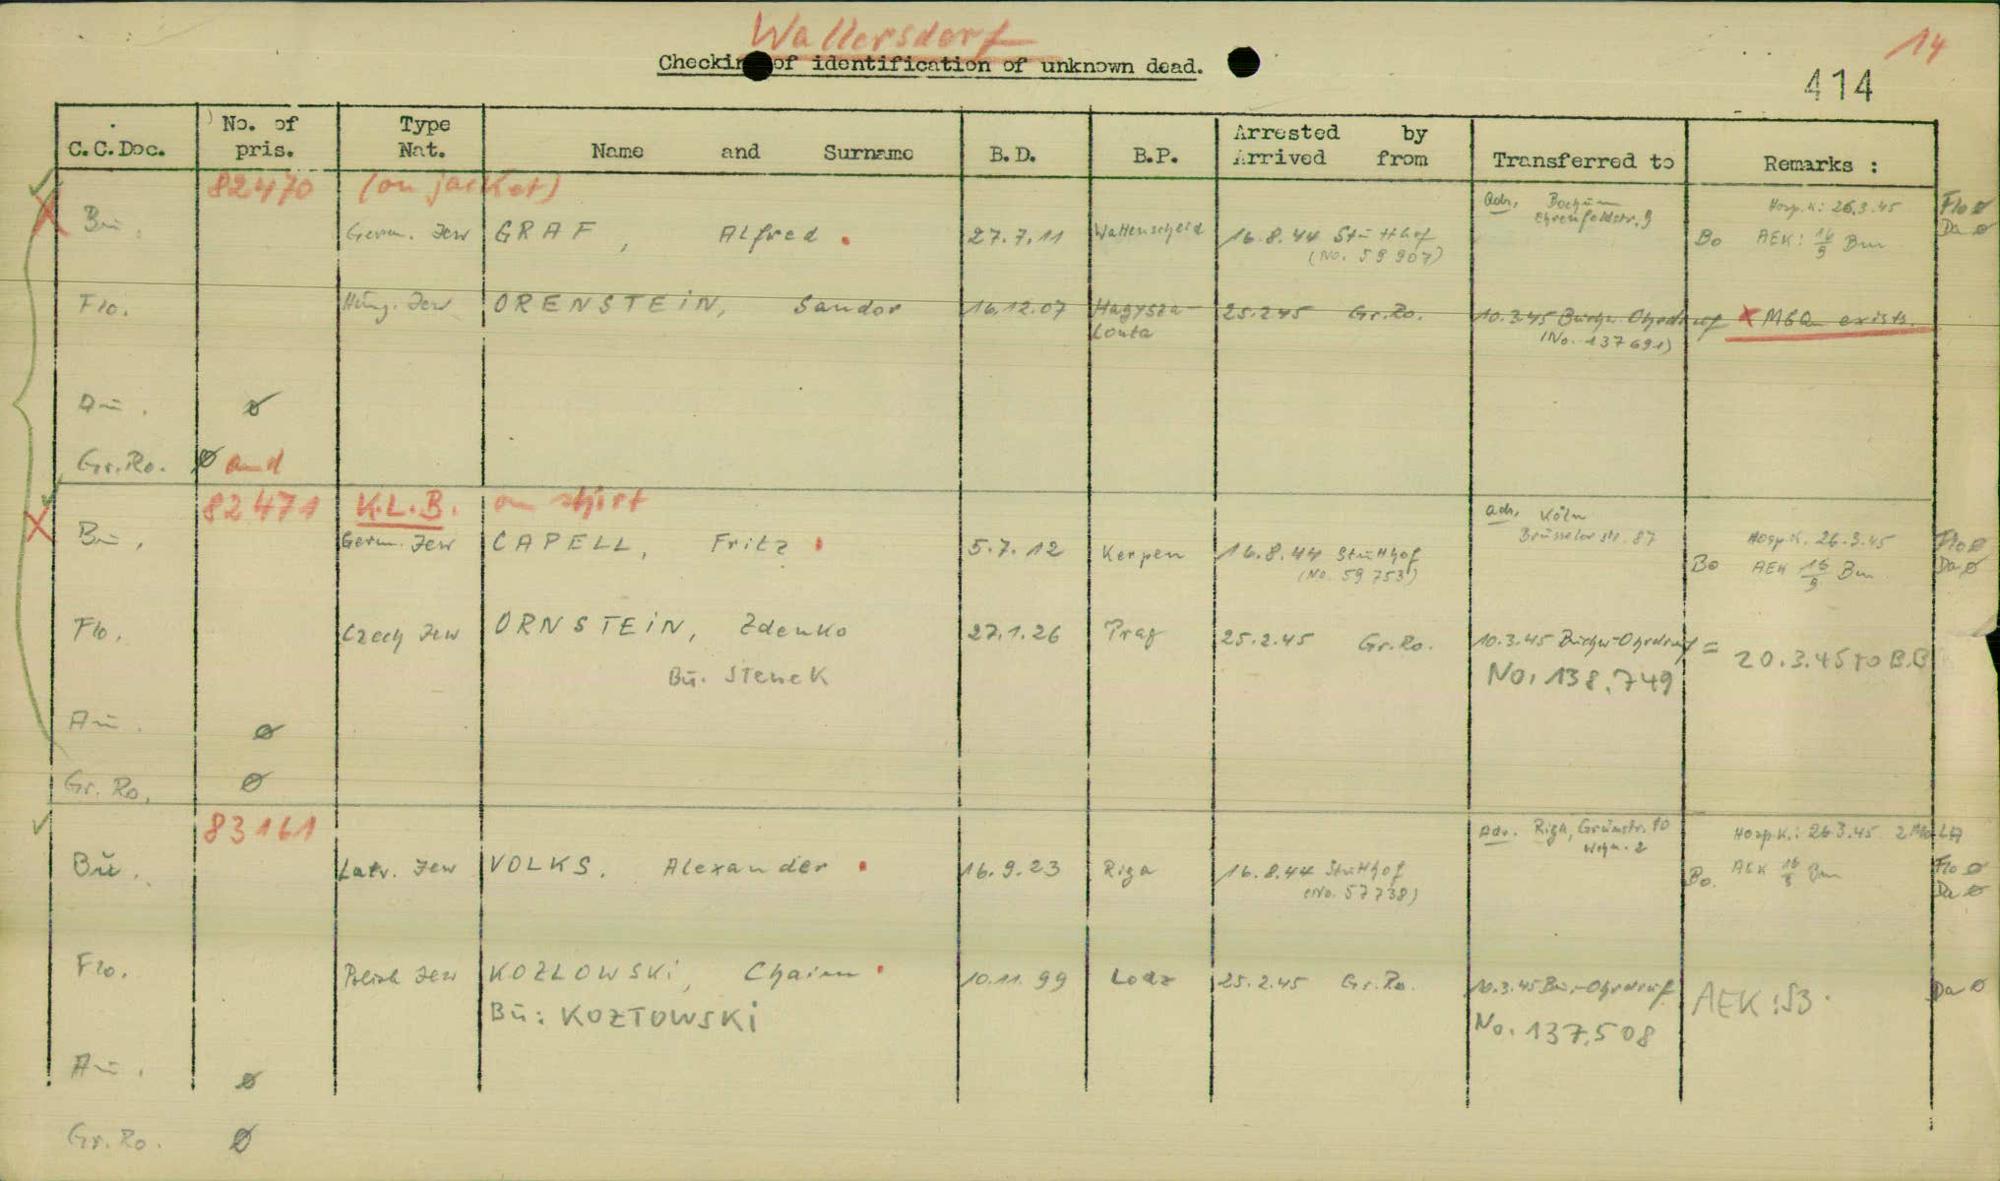 Wallersdorf
14
Checking of identification of unknown dead.
414
C.C.Doc. No. of pris. Type Nat. Name and Surname B.D. B.P. Arrested by Arrived from Transferred to Remarks :
82470 (on jacket)
Adr. Bochum Ehrenfeldstr. 9 Hosp.K: 26.3.45 Flo ø
Bu. Germ. Jew GRAF, Alfred 27.7.11 Wattenscheid 16.8.44 Stutthof Bo AEK: 16/9 Bu Da ø
(No. 59907)
Flo. Hung. Jew ORENSTEIN, Sandor 16.12.07 25.2.45 Gr.Ro. 10.3.45 Buchw. Ohrdruf x exists.
(No. 137691)
Au. ø
Gr.Ro. ø and
82471 K.L.B. on shirt
Adr. Köln Brüsseler str. 87 Hosp.K. 26.3.45 Flo ø
Bu. Germ. Jew CAPELL, Fritz 5.7.12 Kerpen 16.8.44 Stutthof Bo AEK 16/9 Bu Da ø
(No. 59753)
Flo. Czech Jew ORNSTEIN, Zdenko 27.1.26 Prag 25.2.45 Gr.Ro. 10.3.45 Buchw-Ohrdruf = 20.3.45 to B.B
Bu. Stenek No. 138.749
Au. ø
Gr. Ro. ø
83161
Adr. Riga, Wohn. 2 Hosp.K.: 26.3.45
Bu. Latv. Jew VOLKS, Alexander 16.9.23 Riga 16.8.44 Stutthof Bo. AEK 16/9 Bu Flo ø
(No. 57738) Da ø
Flo. Polish Jew KOZLOWSKI, Chaim 10.11.99 Lodz 25.2.45 Gr.Ro. 10.3.45 Bu.-Ohrdruf AEK: Da ø
Bu: KOZTOWSKI No. 137.508
Au. ø
Gr. Ro. ø